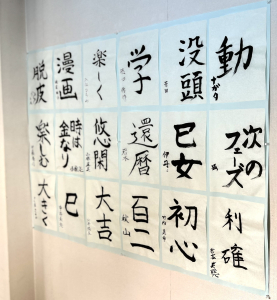 動
没頭
学
楽しく
漫画
脱皮
次の
フェーズ
巳女
還暦
悠閑
時は
金なり
楽む
利確
初心
百二
大吉
巳
大きく